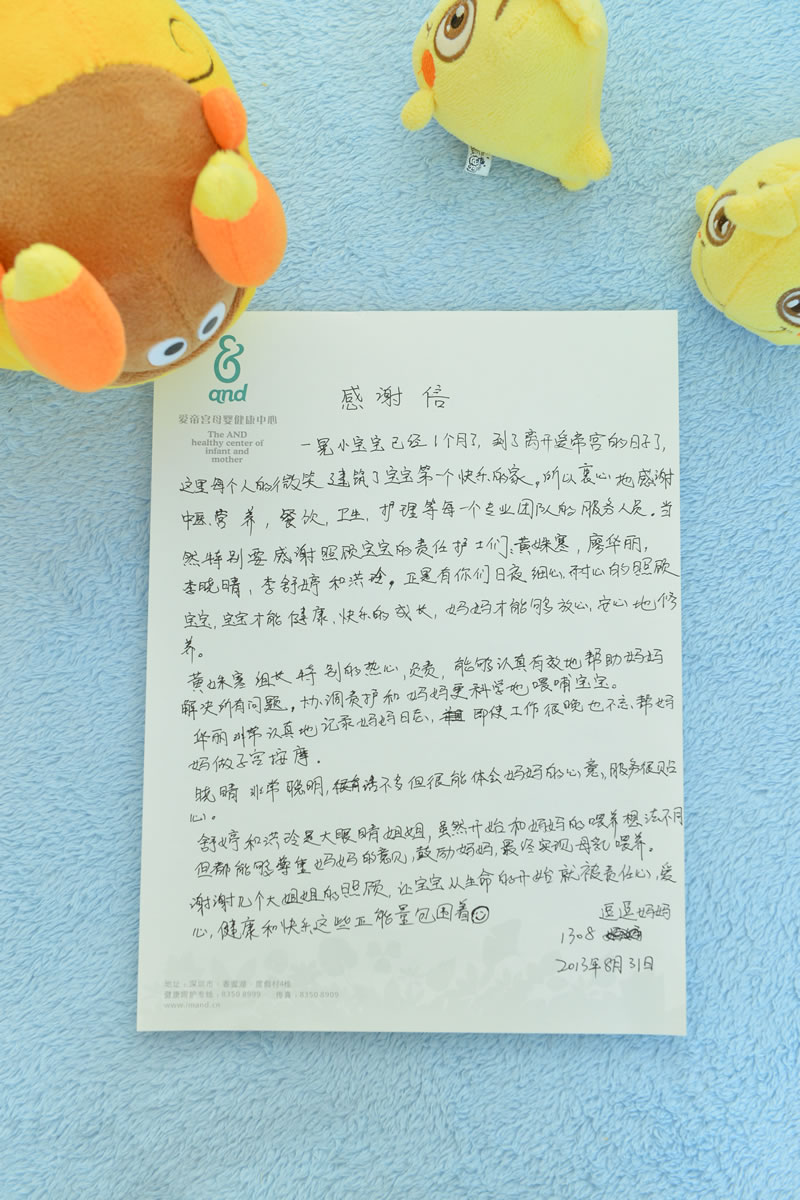 &
and
爱帝宫母婴健康中心
The AND
healthy center of
infant and
mother
感谢信
一晃小宝宝已经1个月了，到了离开爱帝宫的日子了，
这里每个人的微笑建筑了宝宝第一个快乐的家，所以衷心地感谢
中医，营养，餐饮，卫生，护理等每一个专业团队的服务人员。当
然特别要感谢照顾宝宝的责任护士们：黄姝寒，廖华丽，
李晓晴，李舒婷和洪玲。正是有你们日夜细心，耐心的照顾
宝宝，宝宝才能健康、快乐的成长，妈妈才能够放心，安心地修
养。
黄姝寒组长特别的热心，负责，能够认真有效地帮助妈妈
解决所有问题。协调责护和妈妈更科学地喂哺宝宝。
华丽非常认真地记录妈妈日志，即使工作很晚也不忘帮妈
妈做子宫按摩.
晓晴非常聪明，话不多但很能体会妈妈的心意，服务很贴
心。
舒婷和洪玲是大眼睛姐姐，虽然开始和妈妈的喂养想法不同
但都能够尊重妈妈的意见，鼓励妈妈，最终实现母乳喂养。
谢谢几个大姐姐的照顾，让宝宝从生命的开始就被责任心，爱
心，健康和快乐这些正能量包围着☺
逗逗妈妈
1308
2013年8月31日
地址：深圳市·香蜜湖·度假村4栋
健康呵护专线：8350 8999 传真：8350 8909
www.imand.cn